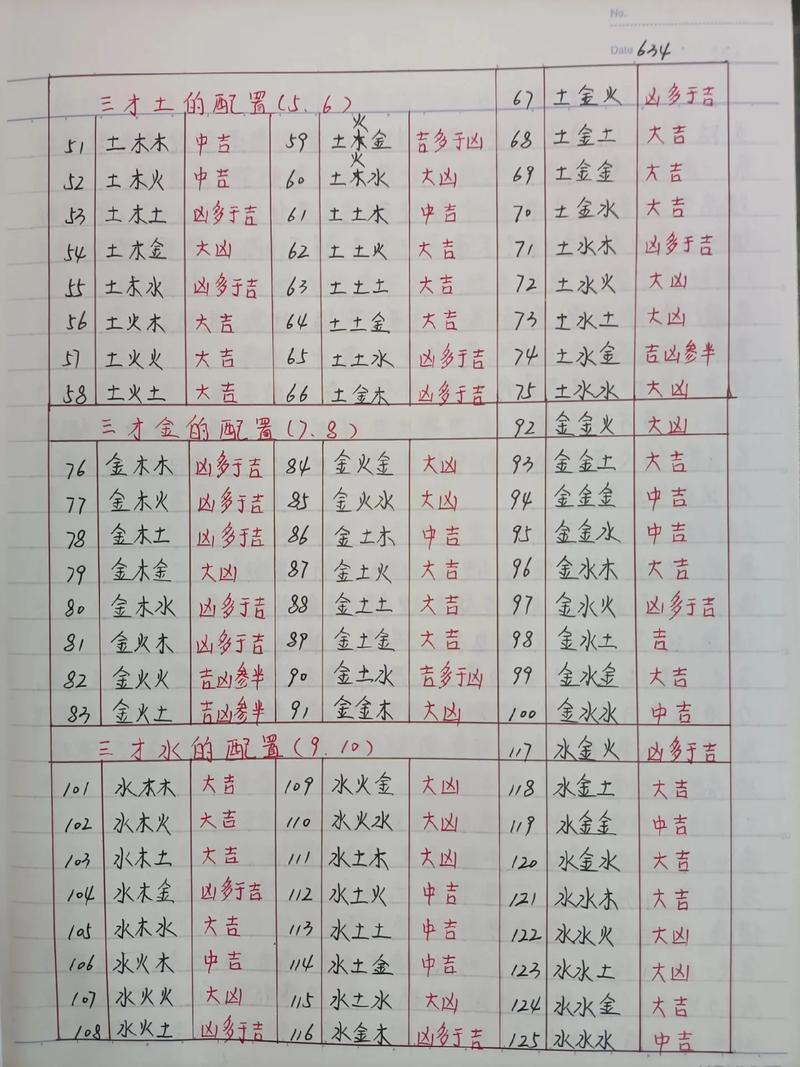 No.
Date 634
三才土的配置(5.6)
51 土木木 中吉
52 土木火 中吉
53 土木土 凶多于吉
54 土木金 大凶
55 土木水 凶多于吉
56 土火木 大吉
57 土火火 大吉
58 土火土 大吉
火
59 土木金 吉多于凶
火
60 土木水 大凶
61 土土木 中吉
62 土土火 大吉
63 土土土 大吉
64 土土金 大吉
65 土土水 凶多于吉
66 土金木 凶多于吉
67 土金火 凶多于吉
68 土金土 大吉
69 土金金 大吉
70 土金水 大吉
71 土水木 凶多于吉
72 土水火 大凶
73 土水土 大凶
74 土水金 吉凶参半
75 土水水 大凶
三才金的配置(7.8)
76 金木木 凶多于吉
77 金木火 凶多于吉
78 金木土 凶多于吉
79 金木金 大凶
80 金木水 凶多于吉
81 金火木 凶多于吉
82 金火火 吉凶参半
83 金火土 吉凶参半
84 金火金 大凶
85 金火水 大凶
86 金土木 中吉
87 金土火 大吉
88 金土土 大吉
89 金土金 大吉
90 金土水 吉多于凶
91 金金木 大凶
92 金金火 大凶
93 金金土 大吉
94 金金金 中吉
95 金金水 中吉
96 金水木 大吉
97 金水火 凶多于吉
98 金水土 吉
99 金水金 大吉
100 金水水 中吉
三才水的配置(9.10)
101 水木木 大吉
102 水木火 大吉
103 水木土 大吉
104 水木金 凶多于吉
105 水木水 大吉
106 水火木 中吉
107 水火火 大凶
108 水火土 凶多于吉
109 水火金 大凶
110 水火水 大凶
111 水土木 大凶
112 水土火 中吉
113 水土土 中吉
114 水土金 中吉
115 水土水 大凶
116 水金木 凶多于吉
117 水金火 凶多于吉
118 水金土 大吉
119 水金金 中吉
120 水金水 大吉
121 水水木 大吉
122 水水火 大凶
123 水水土 大凶
124 水水金 大吉
125 水水水 中吉